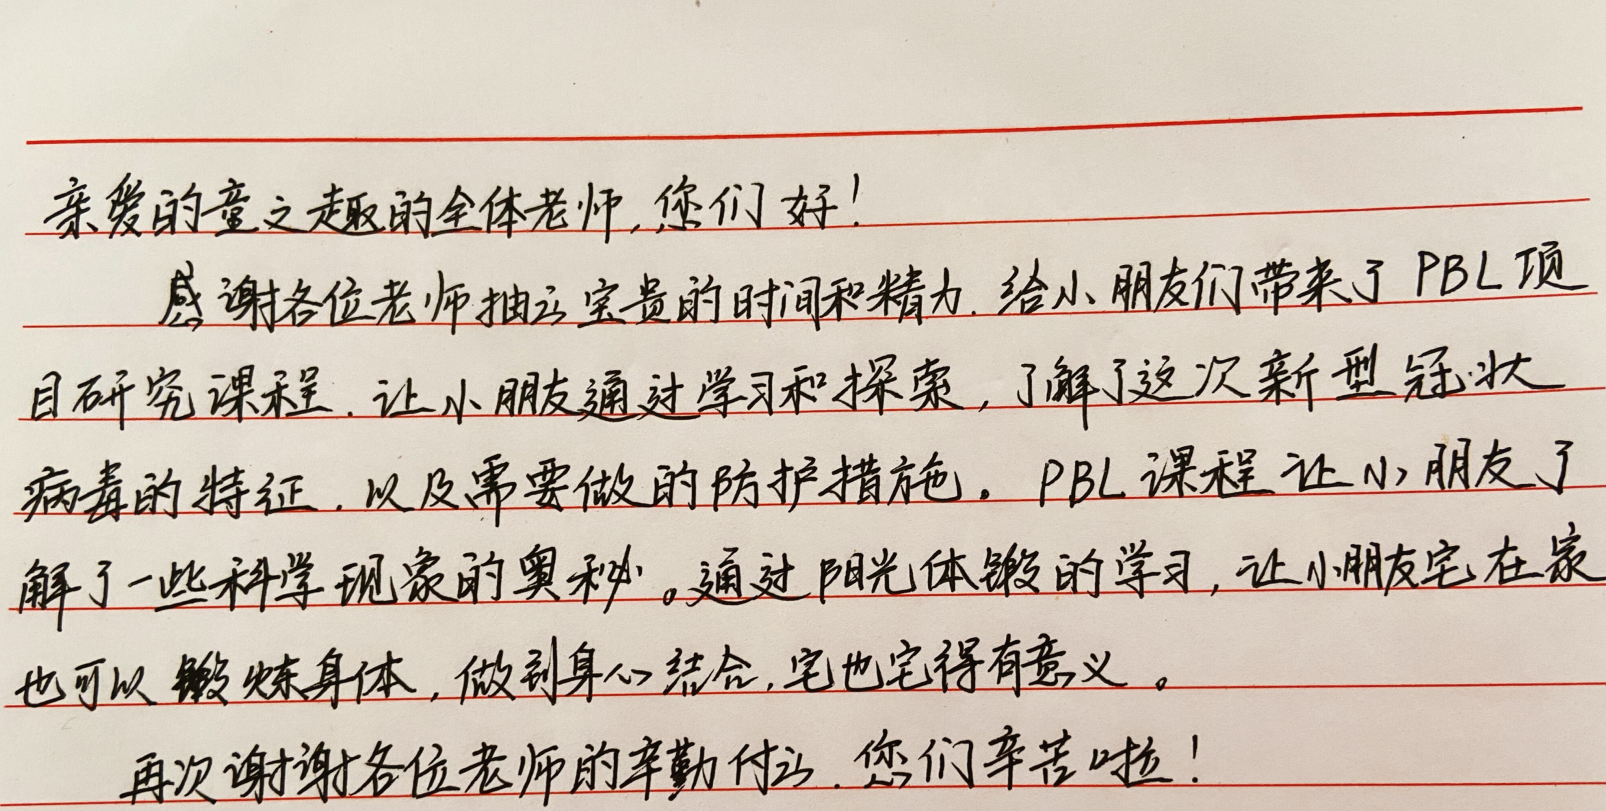 亲爱的童之趣的全体老师,您们好!
感谢各位老师抽出宝贵的时间和精力.给小朋友们带来了PBL项
目研究课程.让小朋友通过学习和探索,了解了这次新型冠状
病毒的特征.以及需要做的防护措施。PBL课程让小朋友了
解了一些科学现象的奥秘。通过阳光体锻的学习,让小朋友宅在家
也可以锻炼身体,做到身心结合,宅也宅得有意义。
再次谢谢各位老师的辛勤付出.您们辛苦啦!